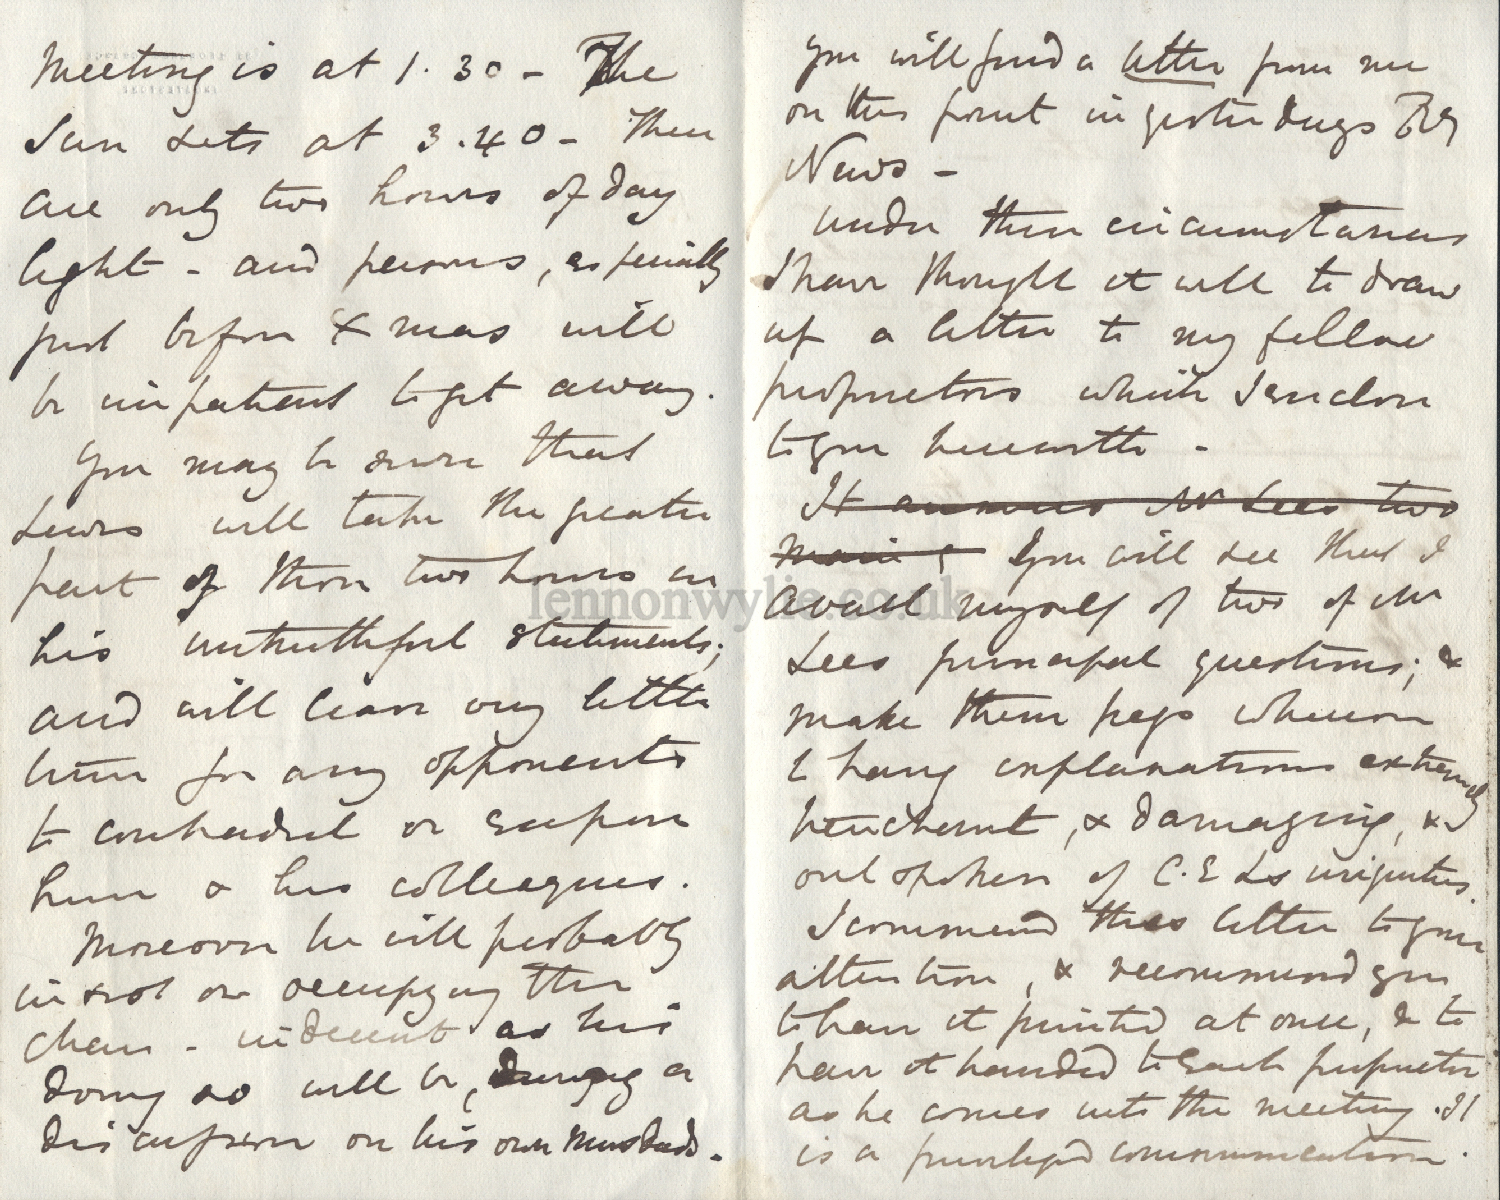 Meeting is at 1.30 - The
Sun sets at 3.40 - There
are only two hours of day
light - and persons, especially
just before Xmas will
be impatient to get away.
You may be sure that
Lewis will take the greater
part of those two hours in
his untruthful statements;
and will leave very little
time for any opponents
to contradict or expose
him & his colleagues.
Moreover he will probably
insist on occupying the
chair - indecent as his
doing so will be, during a
discussion on his own misdeeds.
You will find a letter from me
on this point in yesterdays Rly
News -
Under these circumstances
I have thought it well to draw
up a letter to my fellow
proprietors which I enclose
to you herewith -
It answers Mr Lees two
main q You will see that I
avail myself of two of Mr
Lees principal questions; &
make them pegs whereon
to hang explanations extremely
trenchant, & damaging, &
outspoken of C.E Ls iniquities.
I commend this letter to your
attention, & recommend you
to have it printed at once, & to
have it handed to each proprietor
as he comes into the meeting. It
is a privileged communication.
lennonwylie.co.uk